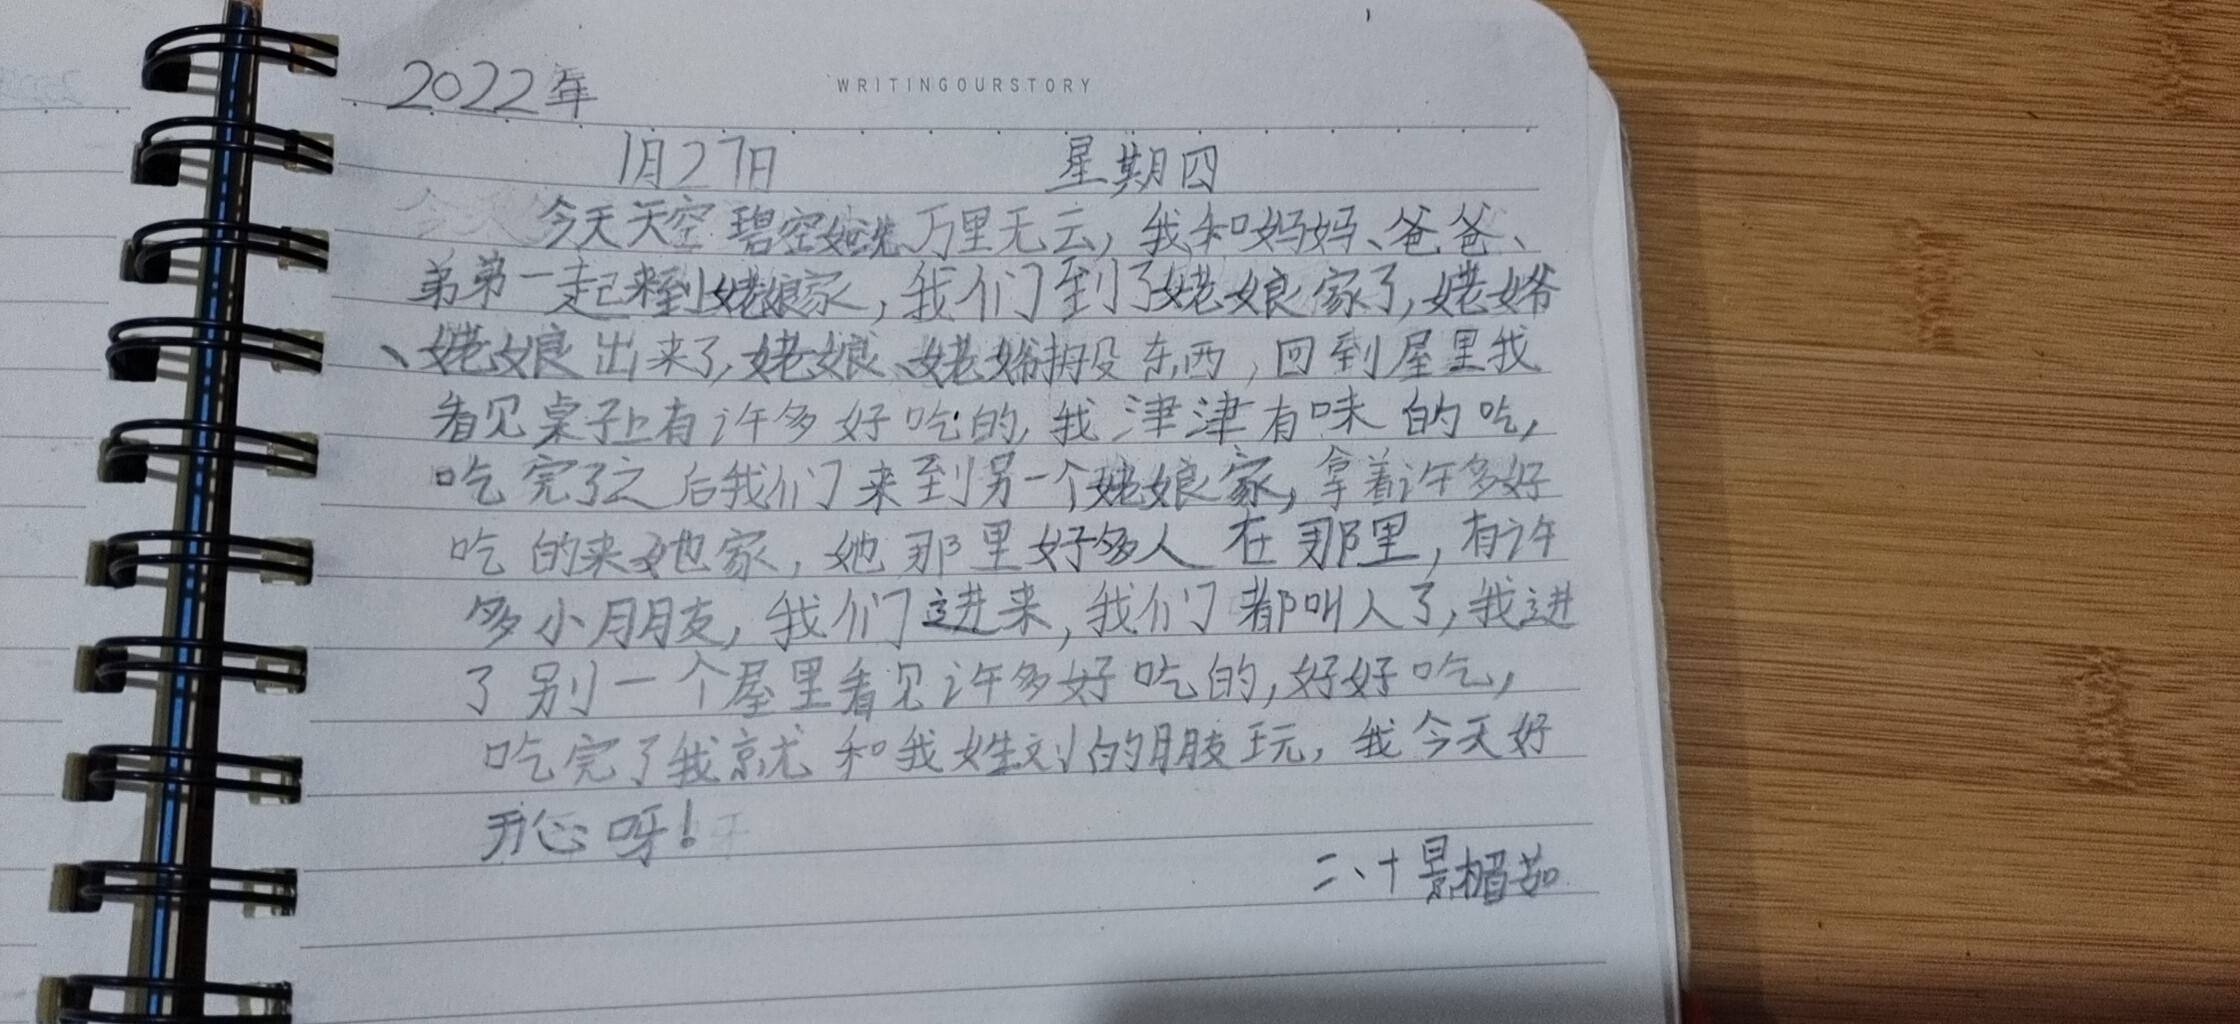 2022年
WRITINGOURSTORY
1月27日 星期四
今天天空碧空如洗万里无云，我和妈妈、爸爸、
弟弟一起来到姥娘家，我们到了姥娘家了，姥爷
、姥娘出来了，姥娘、姥爷搬东西，回到屋里我
看见桌子上有许多好吃的，我津津有味的吃，
吃完了之后我们来到另一个姥娘家，拿着许多好
吃的来她家，她那里好多人在那里，有许
多小朋友，我们进来，我们都叫人了，我进
了别一个屋里看见许多好吃的，好好吃，
吃完了我就和我姓刘的朋友玩，我今天好
开心呀！
二、十景